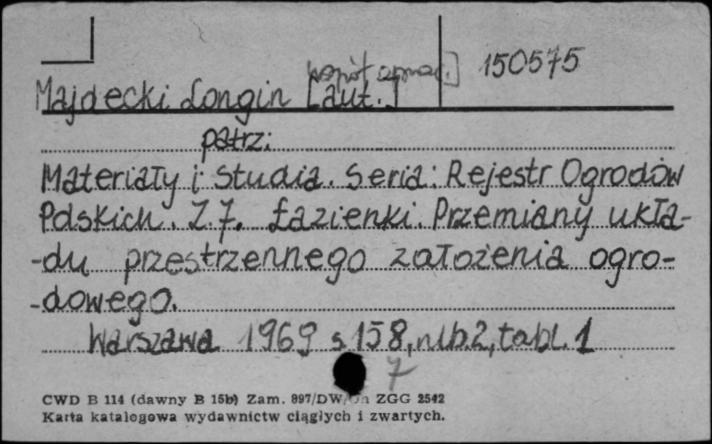 współ oprac.] 150575
Majdecki Longin [aut.]
patrz:
Materiały i Studia. Seria: Rejestr Ogrodów
Polskich. Z 7. Łazienki. Przemiany ukła-
-du przestrzennego założenia ogro-
-dowego.
Warszawa 1969 s. 158, nlb. 2, tabl. 1
7
CWD B 114 (dawny B 15b) Zam. 897/DW/ ZGG 2542
Karta katalogowa wydawnictw ciągłych i zwartych.